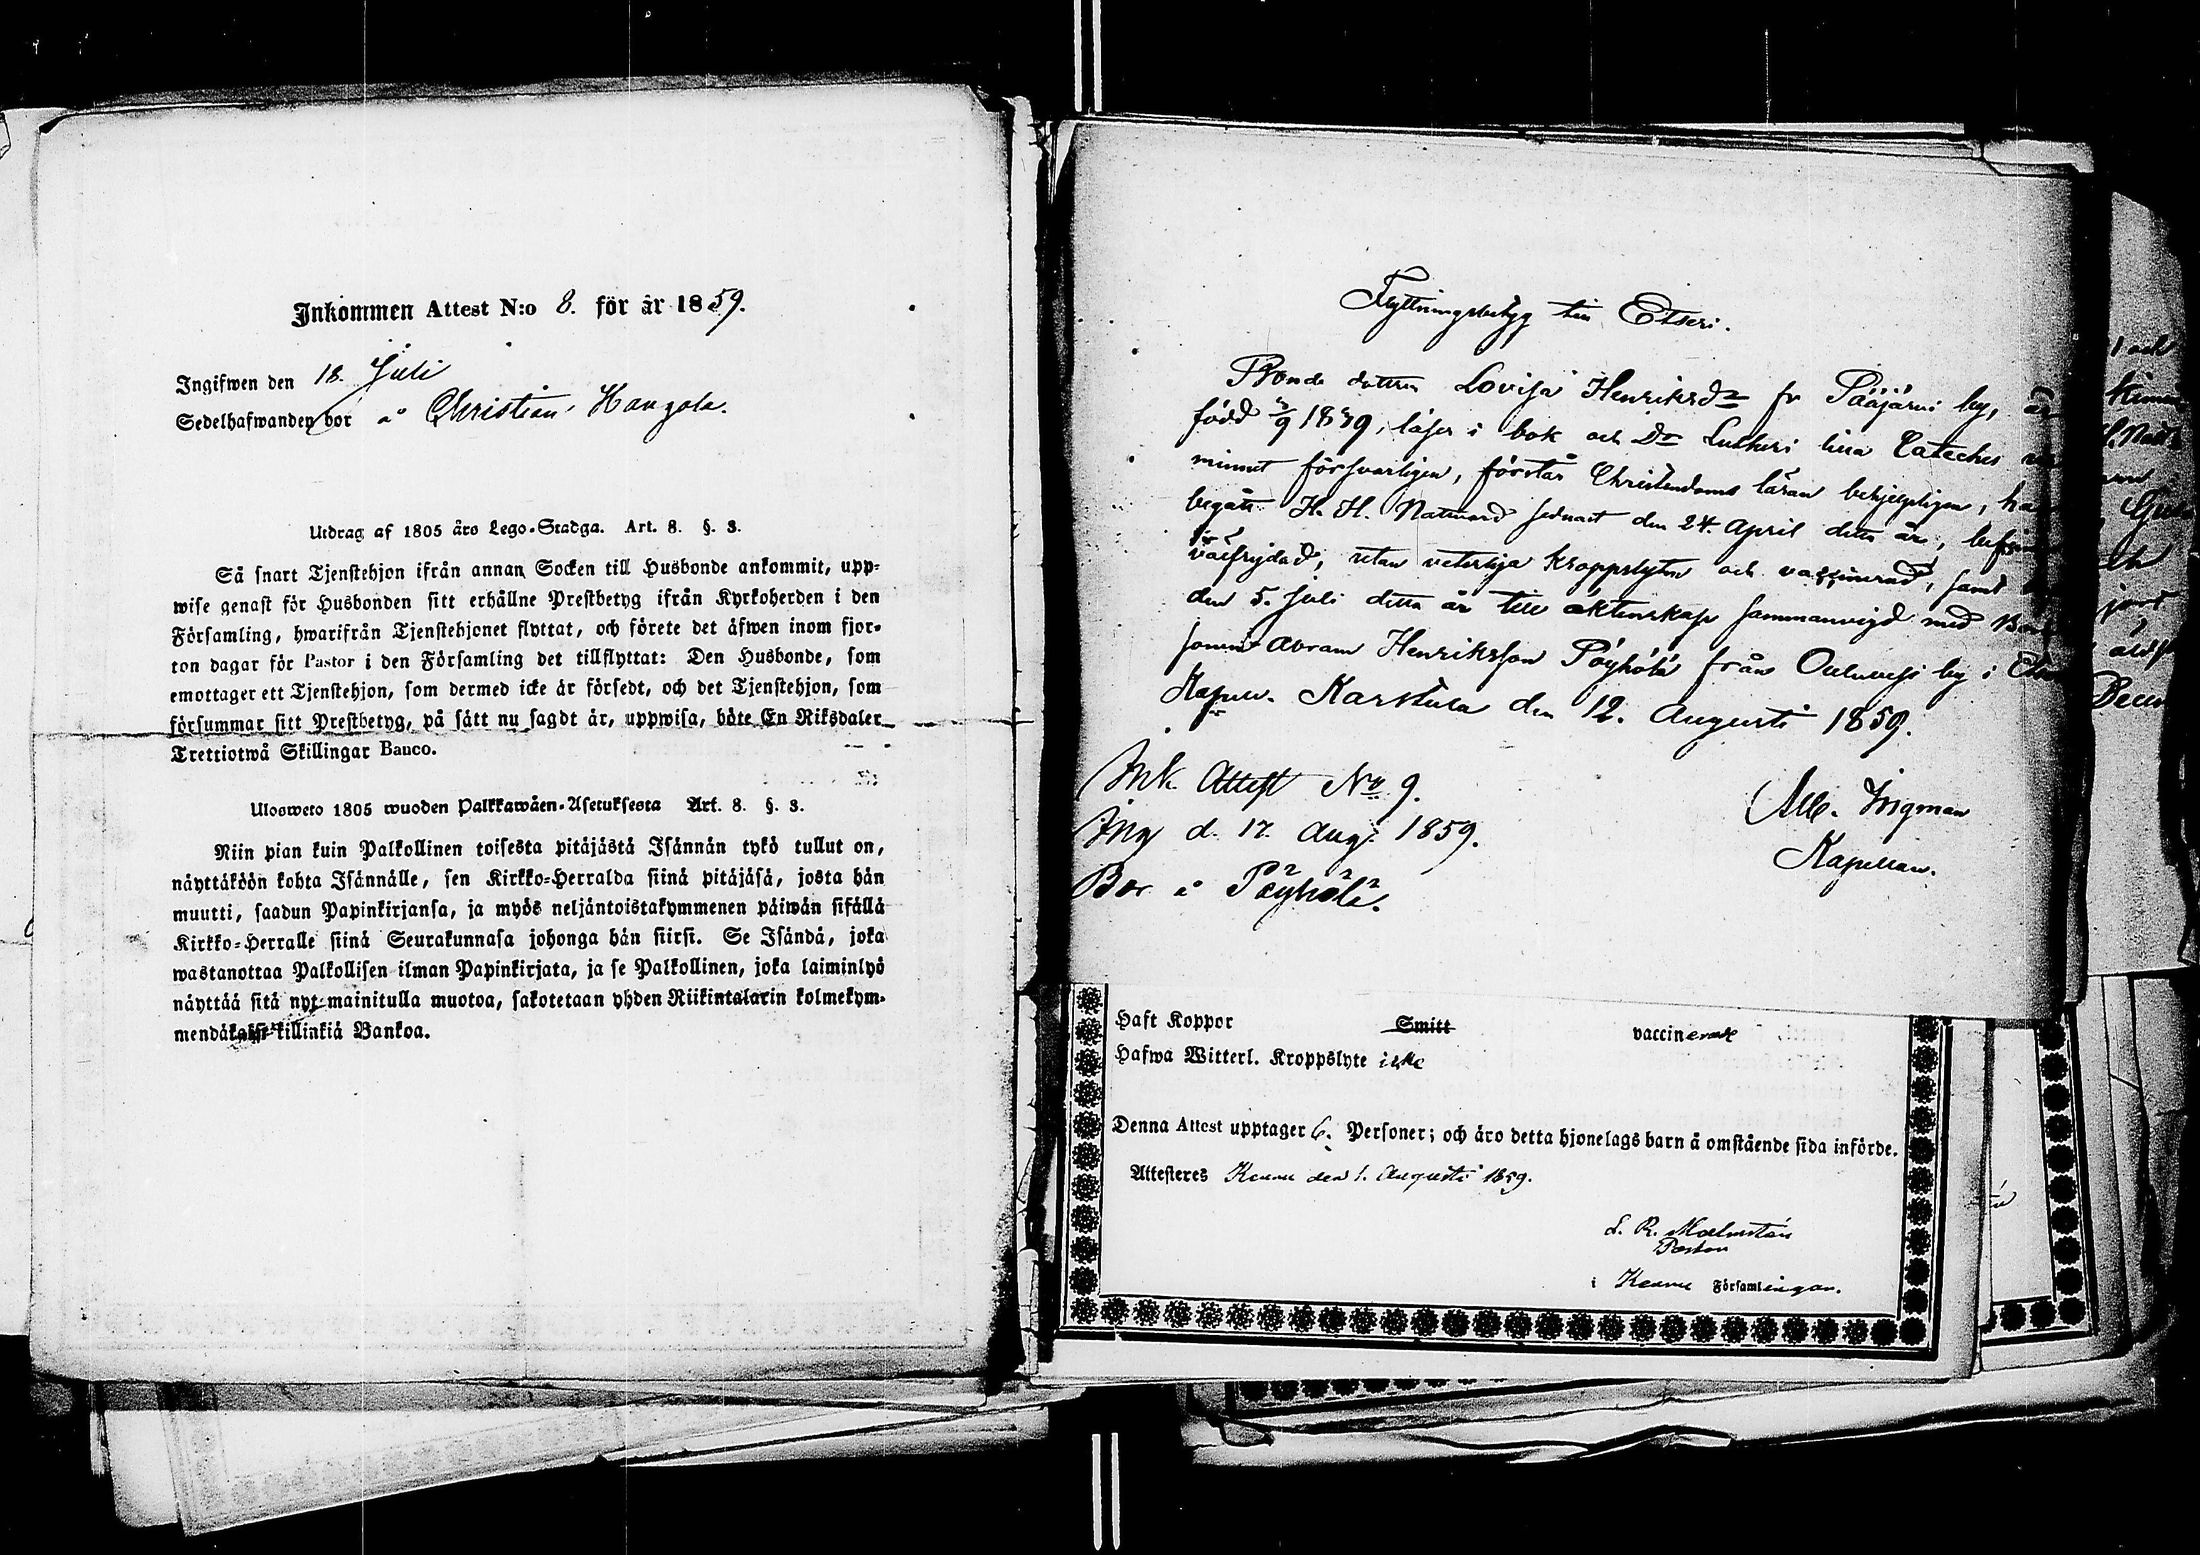 Inkommen Attest N:o 8. för år 1859.
Ingifwen den 18. Juli
Sedelhafwanden bor å Christian Hangola.
Utdrag af 1805 års Lego-Stadga. Art. 8. §. 3.
Så snart Tjenstehjon ifrån annan Socken till Husbonde ankommit, upp-
wise genast för Husbonden sitt erhållne Prestbetyg ifrån Kyrkoherden i den
Församling, hwarifrån Tjenstehjonet flyttat, och förete det äfwen inom fjor-
ton dagar för Pastor i den Församling det tillflyttat: Den Husbonde, som
emottager ett Tjenstehjon, som dermed icke är försedt, och det Tjenstehjon, som
försummar sitt Prestbetyg, på sätt nu sagdt är, uppwisa, böte En Riksdaler
Trettiotwå Skillingar Banco.
Ulosweto 1805 wuoden Palkkawäen-Asetuksesta Art. 8. §. 3.
Niin pian kuin Palkollinen toisesta pitäjästä Isännän tykö tullut on,
näyttäköön kohta Isännälle, sen Kirkko-Herralda siinä pitäjäsä, josta hän
muutti, saadun Papinkirjansa, ja myös neljäntoistakymmenen päiwän sisällä
Kirkko-Herralle siinä Seurakunnasa johonga hän siirsi. Se Isändä, joka
wastanottaa Palkollisen ilman Papinkirjata, ja se Palkollinen, joka laiminlyö
näyttää sitä nyt mainitulla muotoa, sakotetaan yhden Riikintalarin kolmekym-
mendä killinkiä Bankoa.
Flyttningsbetyg till Etseri.
Bonde dottren Lovisa Henriksdr fr Pääjärvi by, är
född 3/9 1839, läser i bok och Dr Lutheri lilla Cateches
minnet försvarligen, förstår Christendoms läran behjelpligen, har
begått H. H. Nattvard sednast den 24 April detta år,
välfrejdad, utan veterliga kroppslyten och vaccinerad, samt
den 5. Juli detta år till äktenskap sammanvigd med
sonen Abram Henriksson Pöyhölä från by i
Kapell. Karstula den 12. Augusti 1859.
Alb. Ingman
Kapellan.
Ink Attest No 9.
Ing d. 17 Aug. 1859.
Bor å Pöyhölä.
Haft Koppor Smitt vaccinerade
Hafwa Witterl. Kroppslyte icke
Denna Attest upptager 6. Personer; och äro detta hjonelags barn å omstående sida införde.
Attesteres Keuru den 1. Augusti 1859.
L. R. Malmstén
Pastor
i Keuru Församlingar.